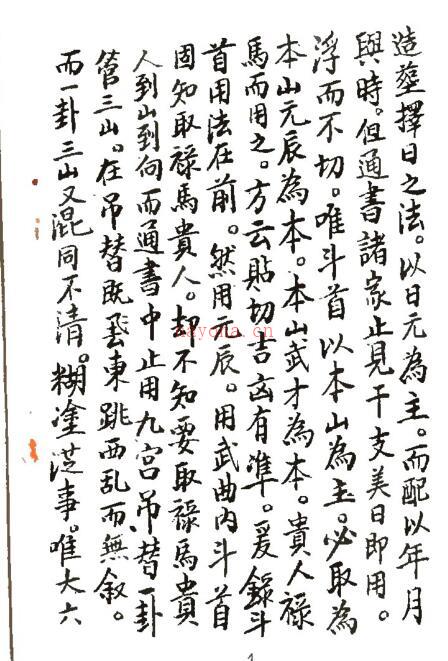 造塟擇日之法。以日元為主。而配以年月
與時。但通書諸家止見干支美日即用。
浮而不切。唯斗首以本山為主。必取為
本山元辰為本。本山武才為本。貴人祿
馬而用之。方云貼切吉凶有準。爰錄斗
首用法在前。然用元辰。用武曲內斗首
固知取祿馬貴人。却不知要取祿馬貴
人到山到向而通書中止用九宮吊替一卦
管三山。在吊替既丟東跳西乱而無敘。
而一卦三山又混同不清。糊塗誤事。唯大六